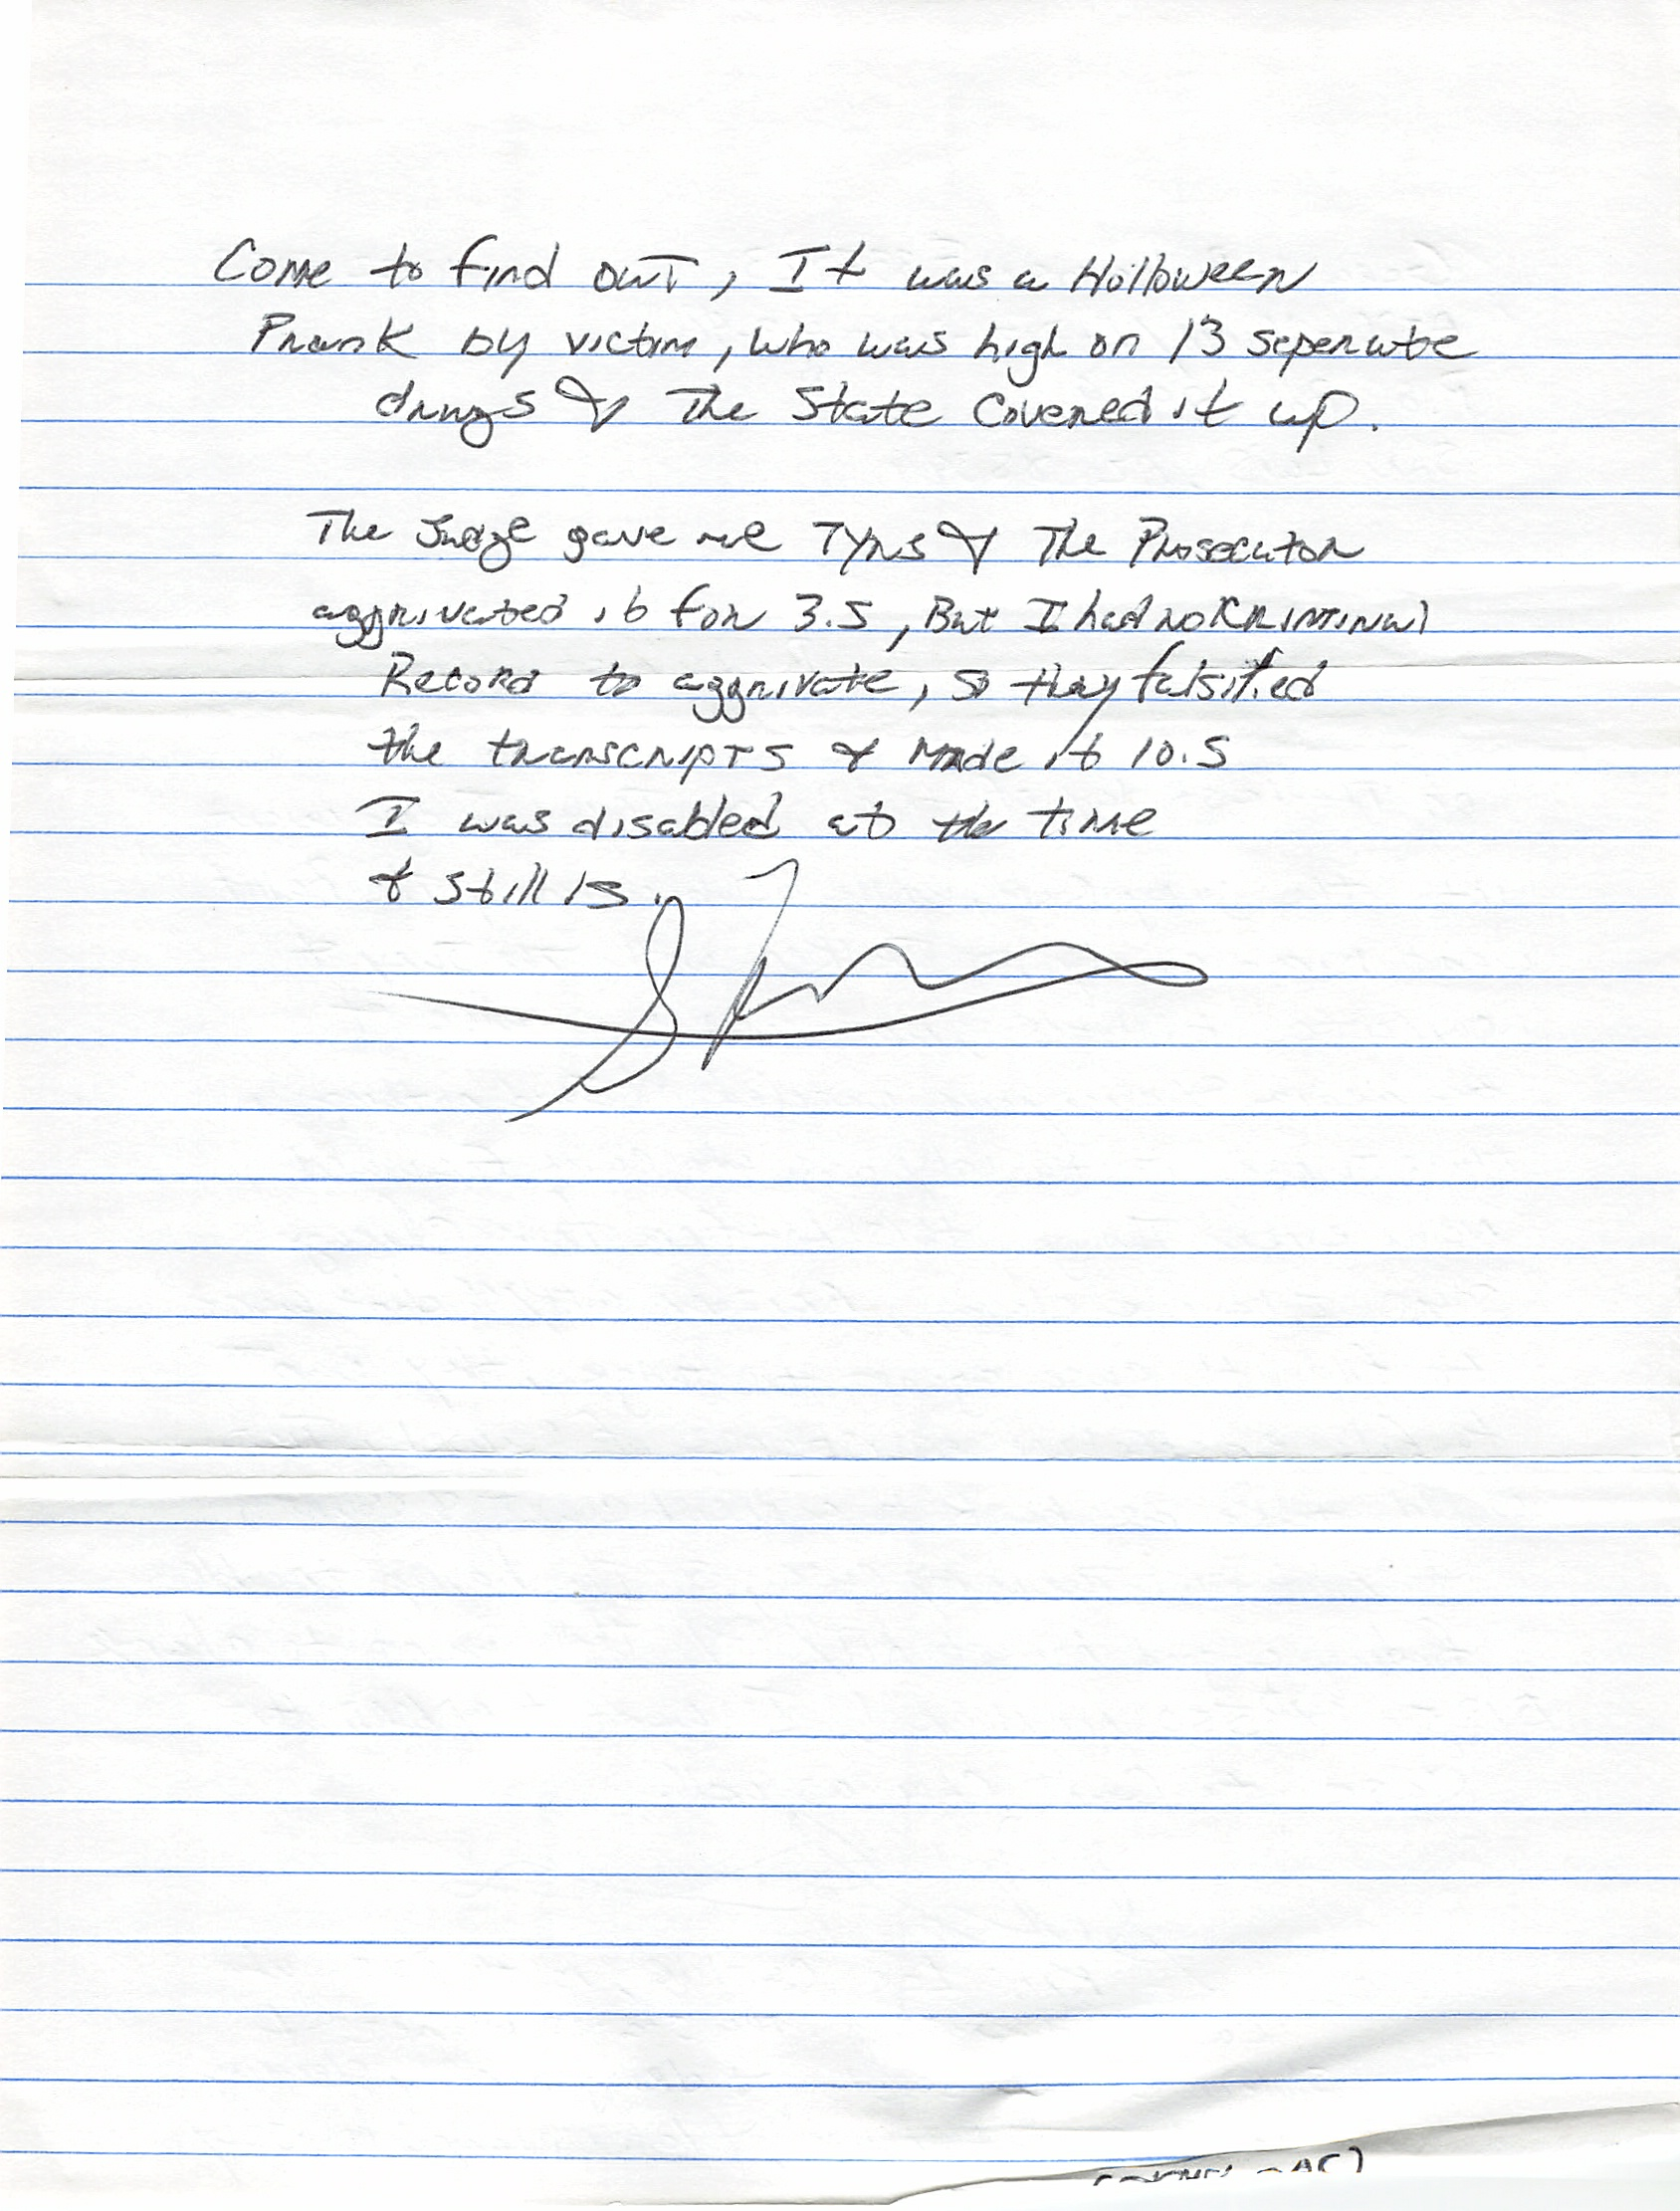 Come to find out, It was a Holloween
Prank by victim, who was high on 13 seperate
drugs & The State Covered it up.
The Judge gave me 7yrs & The Prosecutor
aggrivated it for 3.5, But I had no CRIMINAl
Record to aggrivate, so they falsified
the transcripts & Made it 10.5
I was disabled at the time
& still is.